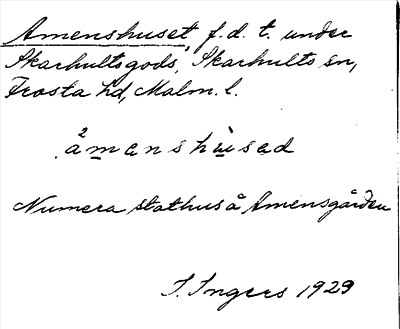 Amenshuset, f. d. t. under
Skarhults gods, Skarhults sn,
Frosta hd, Malm. l.
2åmanshùsad
Numera stathus å Amensgården
I. Ingers 1929